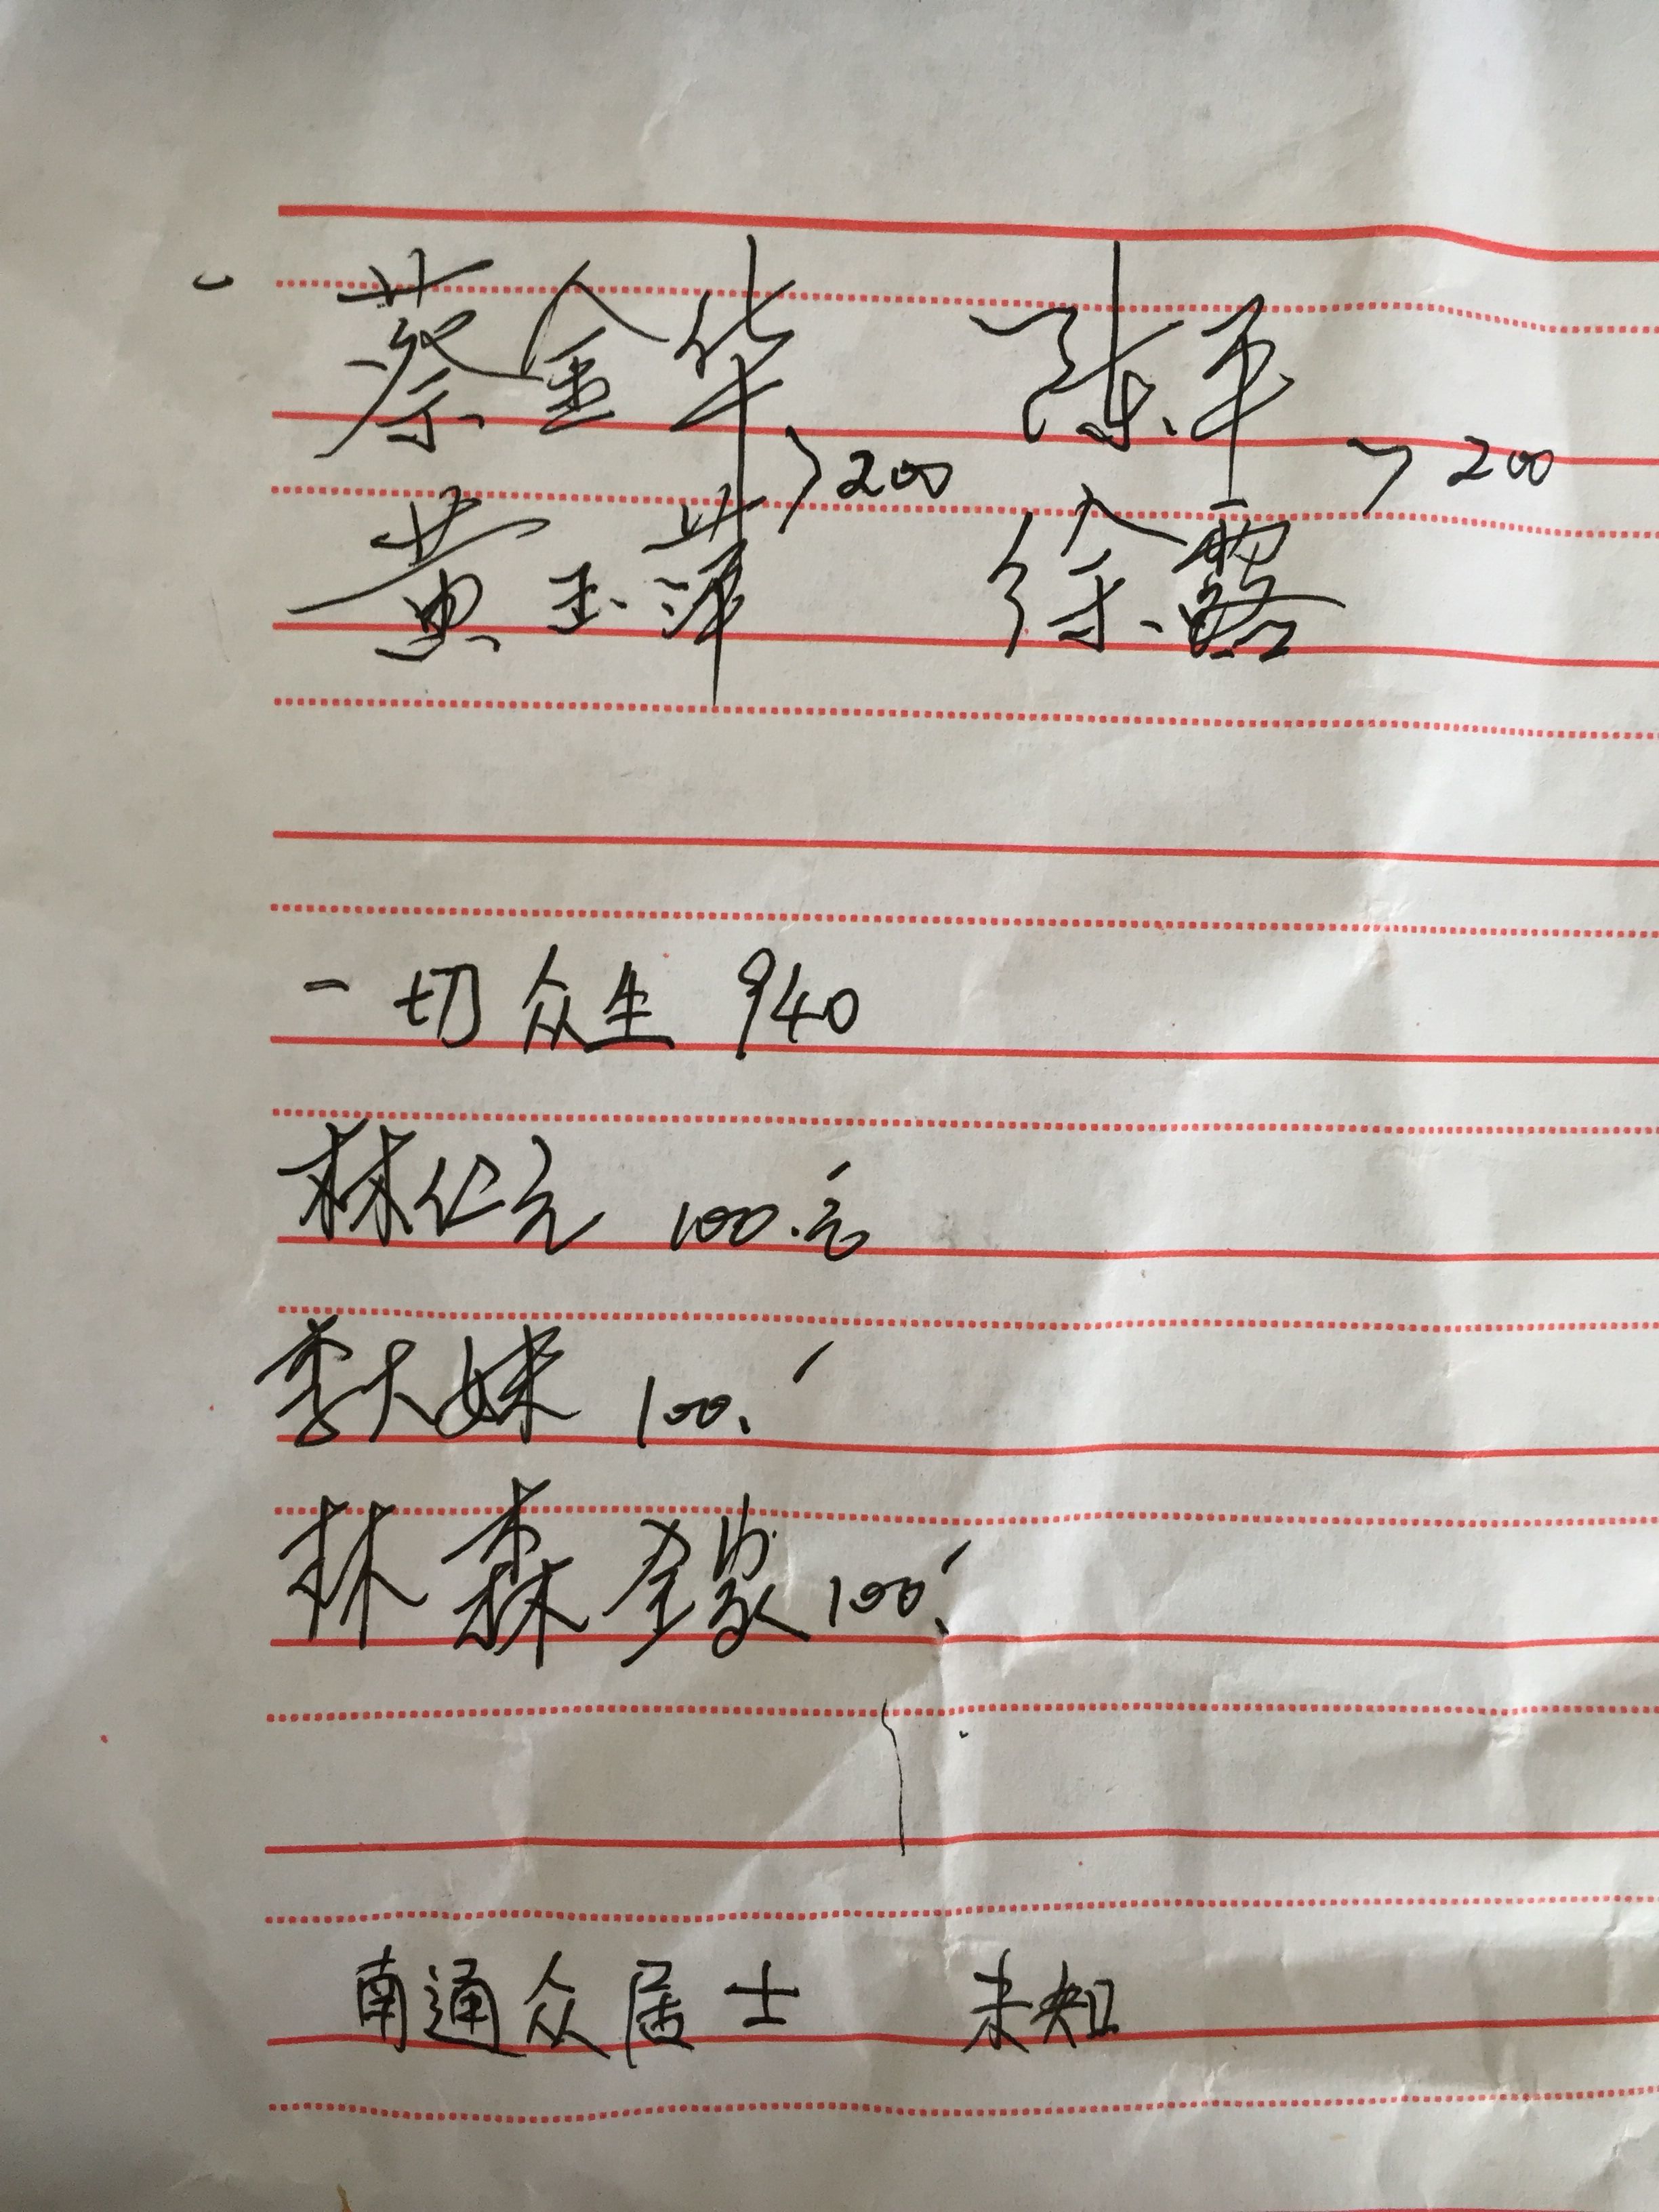 蔡金华 陈平
>200 >200
黄玉萍 徐露
一切众生 940
林仁元 100.元
李大妹 100.
林森全家 100.
南通众居士 未知